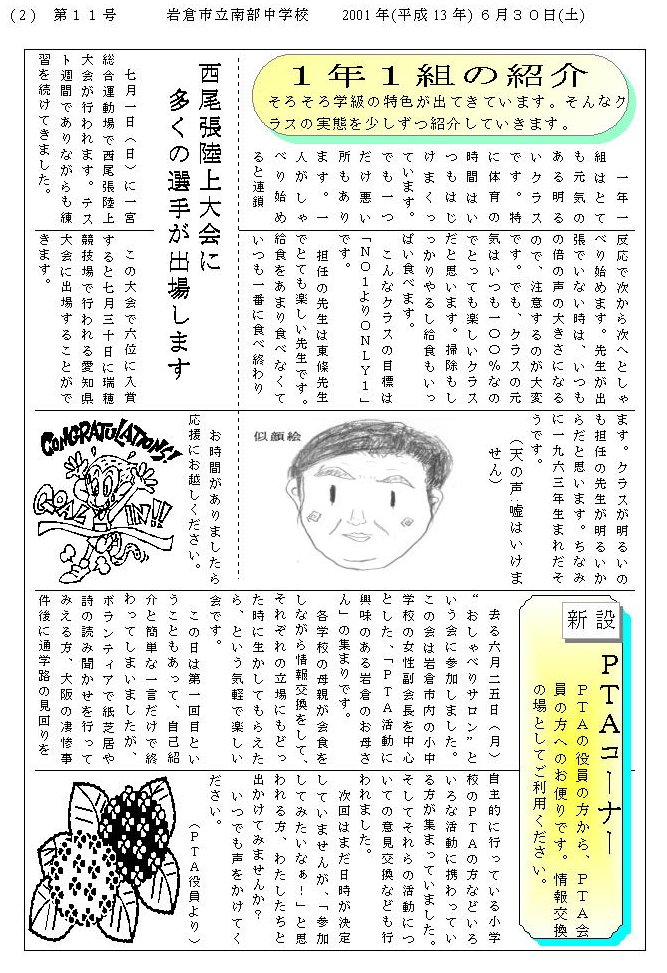 (2) 第11号 岩倉市立南部中学校 2001年(平成13年)6月30日(土)
1年1組の紹介
そろそろ学級の特色が出てきています。そんなク
ラスの実態を少しずつ紹介していきます。
一年一
組はとて
も元気の
ある明る
いクラス
です。特
に体育の
時間はい
つもはじ
けまくっ
ています。
でも一つ
だけ悪い
所もあり
ます。一
人がしゃ
べり始め
ると連鎖
反応で次から次へとしゃ
べり始めます。先生が出
張でいない時は、いつも
の倍の声の大きさになる
ので、注意するのが大変
です。でも、クラスの元
気はいつも一〇〇%なの
でとっても楽しいクラス
だと思います。掃除もし
っかりやるし給食もいっ
ぱい食べます。
こんなクラスの目標は
「NO1よりONLY1」
です。
担任の先生は東條先生
でとても楽しい先生です。
給食をあまり食べなくて
いつも一番に食べ終わり
ます。クラスが明るいの
も担任の先生が明るいか
らだと思います。ちなみ
に一九六三年生まれだそ
うです。
(天の声:嘘はいけま
せん)
似顔絵
西尾張陸上大会に
多くの選手が出場します
七月一日(日)に一宮
総合運動場で西尾張陸上
大会が行われます。テス
ト週間でありながらも練
習を続けてきました。
この大会で六位に入賞
すると七月三十日に瑞穂
競技場で行われる愛知県
大会に出場することがで
きます。
お時間がありましたら
応援にお越しください。
CONGRATULATIONS!
GOAL IN!!
新設
PTAコーナー
PTAの役員の方から、PTA会
員の方へのお便りです。情報交換
の場としてご利用ください。
去る六月二五日(月)
“おしゃべりサロン”と
いう会に参加しました。
この会は岩倉市内の小中
学校の女性副会長を中心
とした、「PTA活動に
興味のある岩倉のお母さ
ん」の集まりです。
各学校の母親が会食を
しながら情報交換をして、
それぞれの立場にもどっ
た時に生かしてもらえた
ら、という気軽で楽しい
会です。
この日は第一回目とい
うこともあって、自己紹
介と簡単な一言だけで終
わってしまいましたが、
ボランティアで紙芝居や
詩の読み聞かせを行って
みえる方、大阪の凄惨事
件後に通学路の見回りを
自主的に行っている小学
校のPTAの方などいろ
いろな活動に携わってい
る方が集まっていました。
そしてそれらの活動につ
いての意見交換なども行
われました。
次回はまだ日時が決定
していませんが、「参加
してみたいなぁ!」と思
われる方、わたしたちと
出かけてみませんか?
いつでも声をかけてく
ださい。
(PTA役員より)